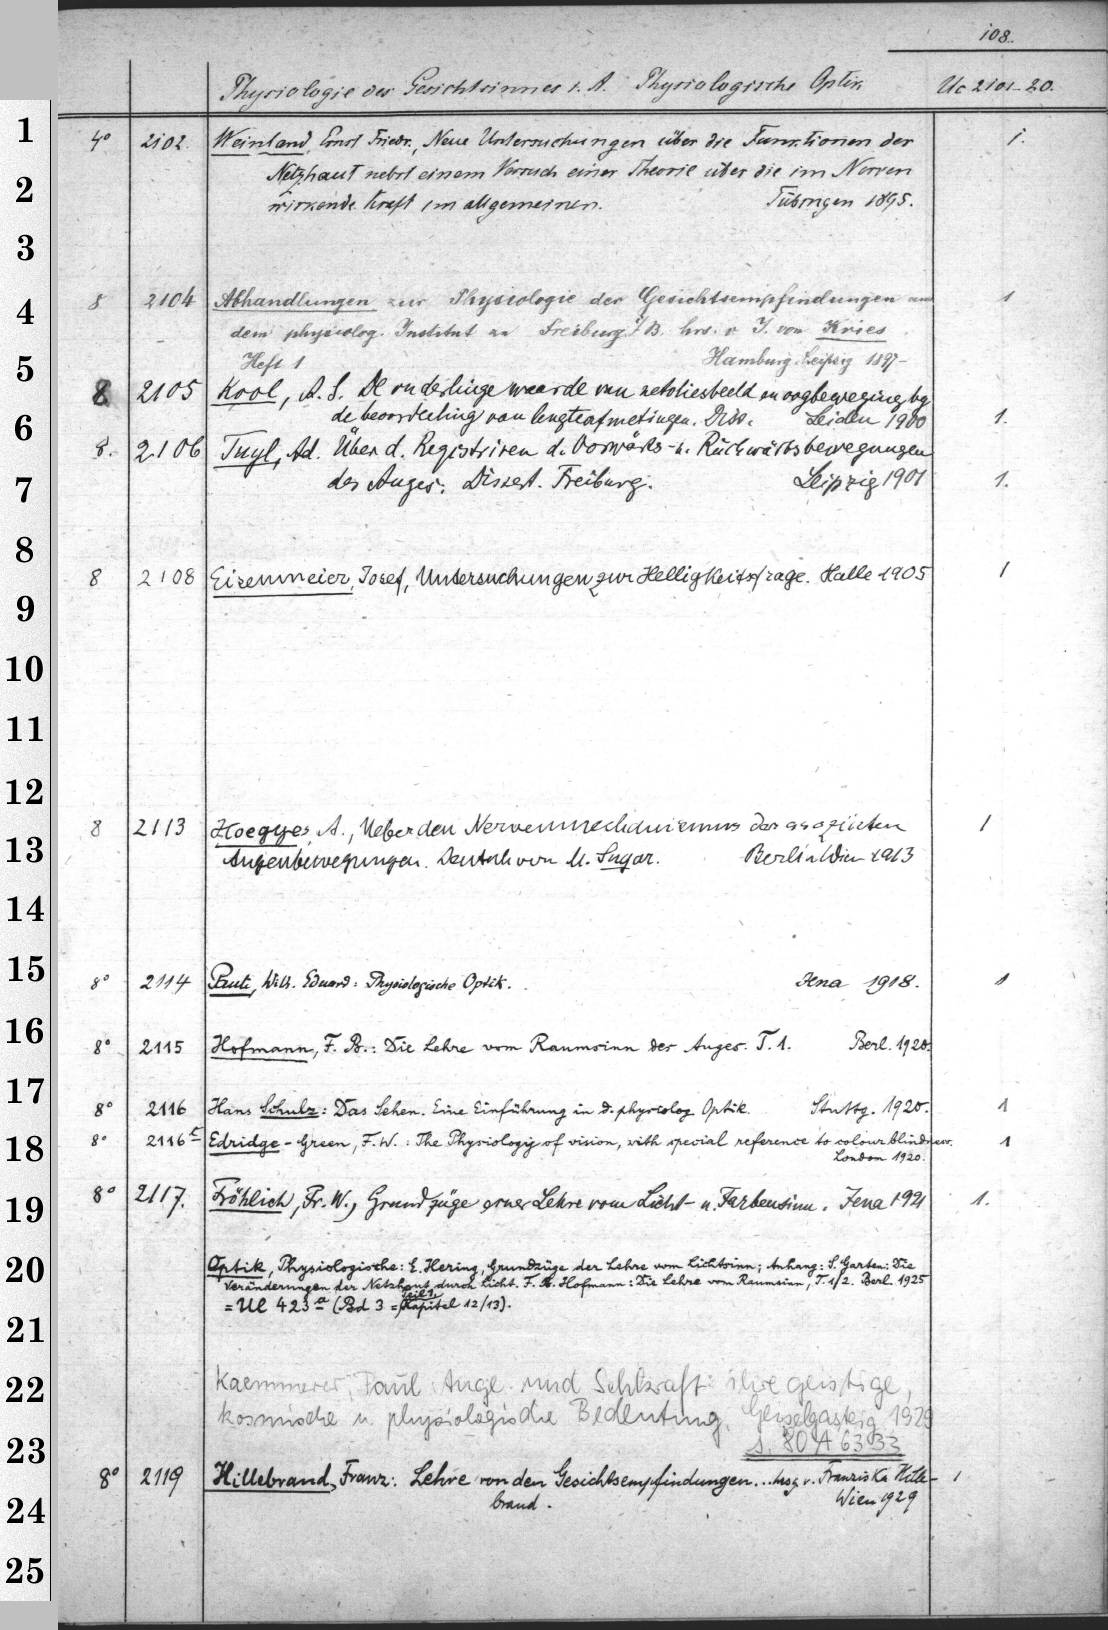 108.
Physiologie des Gesichtsinnes i. A. Physiologische Optik Uc 2101-20.
1 4° 2102. Weinland, Ernst Friedr., Neue Untersuchungen über die Funktionen der 1.
2 Netzhaut nebst einem Versuch einer Theorie über die im Nerven
wirkende Kraft im allgemeinen. Tübingen 1895.
3
4 8 2104 Abhandlungen zur Physiologie der Gesichtsempfindungen aus 1
dem physiolog. Institut zu Freiburg i/B. hrs. v J. von Kries
5 Heft 1 Hamburg. Leipzig 1897-
8 2105 Kool, A. S. De onderlinge waarde van netvliesbeeld en oogbeweging by
6 de beoordeeling van lengteafmetingen. Diss. Leiden 1900 1.
8. 2106 Tuyl, Ad. Über d. Registriren d. Vorwärts- u. Rückwärtsbewegungen
7 des Auges. Dissert. Freiburg. Leipzig 1901 1.
8 8 2108 Eisenmeier, Josef, Untersuchungen zur Helligkeitsfrage. Halle 1905 1
9
10
11
12
8 2113 Hoegyes, A., Ueber den Nervenmechanismus der assoziierten 1
13 Augenbewegungen. Deutsch von M. Sugar. Berlin u Wien 1913
14
15 8° 2114 Pauli, Wilh. Eduard: Physiologische Optik. Jena 1918. 1
16 8° 2115 Hofmann, F. B.: Die Lehre vom Raumsinn des Auges. T. 1. Berl. 1920.
17 8° 2116 Hans Schulz: Das Sehen. Eine Einführung in d. physiolog Optik. Stuttg. 1920. 1
18 8° 2116 c Edridge-Green, F. W.: The Physiology of vision, with special reference to colour blindness. 1
London 1920.
19 8° 2117. Fröhlich, Fr. W., Grundzüge einer Lehre vom Licht- u. Farbensinn. Jena 1921 1.
20 Optik, Physiologische: E. Hering, Grundzüge der Lehre vom Lichtsinn; Anhang: S. Garten: Die
Veränderungen der Netzhaut durch Licht. F. B. Hofmann: Die Lehre vom Raumsinn, T. 1/2. Berl. 1925
Teil 1,
= Ul 423 a (Bd 3 = Kapitel 12/13).
21
22 Kaemmerer, Paul Auge und Sehkraft: ihre geistige,
kosmische u. physiologische Bedeutung. Geiselgasteig 1929
23 s. 80 A 6333
8° 2119 Hillebrand, Franz: Lehre von den Gesichtsempfindungen... hrsg v. Franziska Hille- 1
24 brand. Wien 1929
25